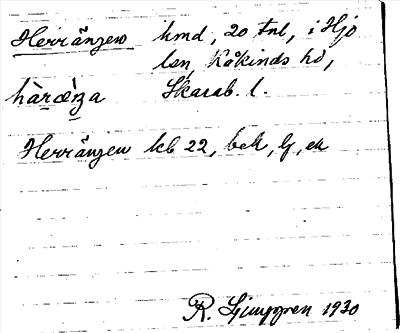 Herrängen hmd, 20 tnl, i Hjo
lsn, Kåkinds hd,
hàræ̀ŋa Skarab. l.
Herrängen kb 22, bek, lf, ek
R. Ljunggren 1930